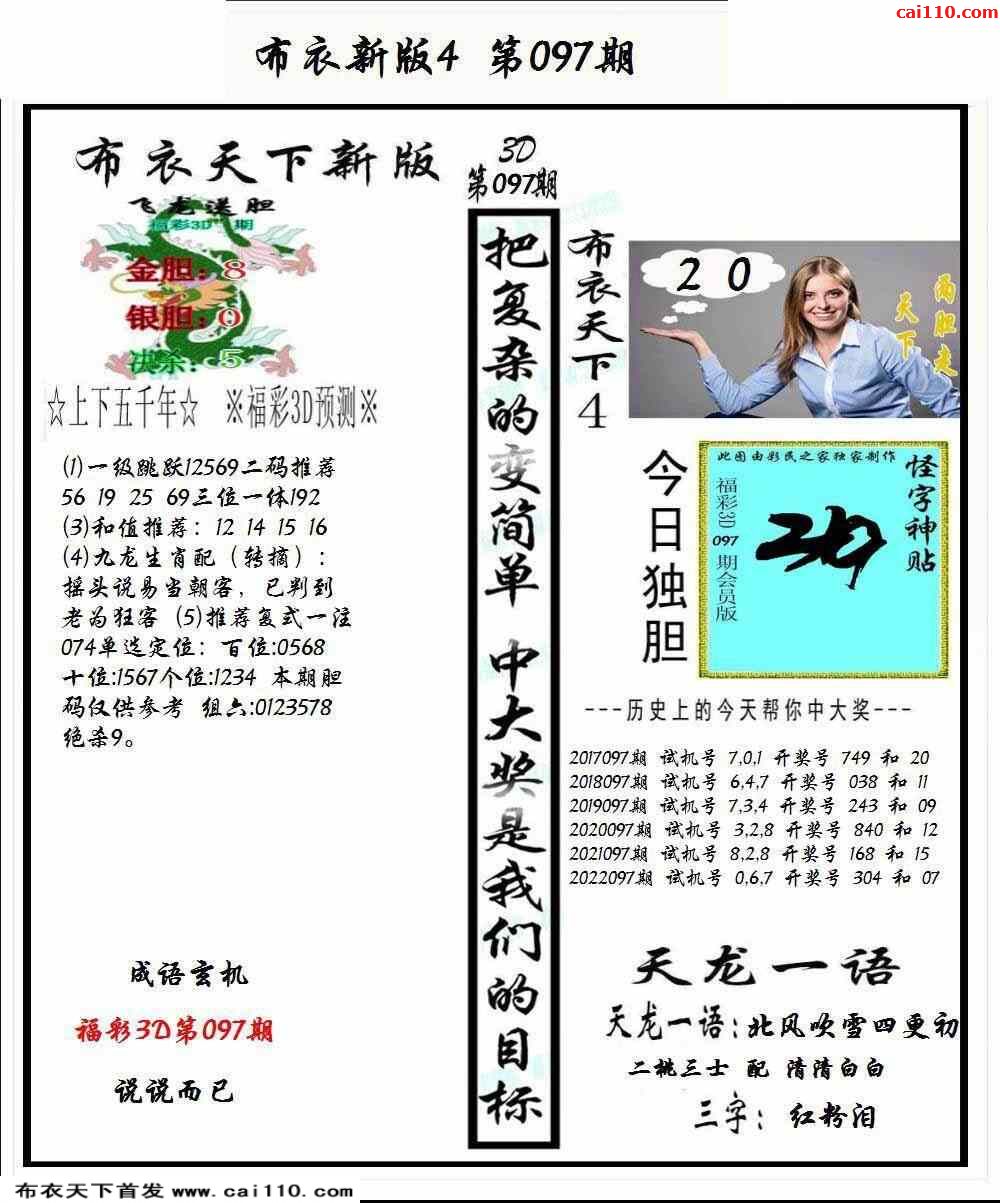 cai110.com
布衣新版4 第097期
布衣天下新版
飞龙送胆
福彩3D 期
金胆：8
银胆：0
决杀：5
☆上下五千年☆ ※福彩3D预测※
(1)一级跳跃12569二码推荐
56 19 25 69三位一体192
(3)和值推荐：12 14 15 16
(4)九龙生肖配（转摘）：
摇头说易当朝客，已判到
老为狂客 (5)推荐复式一注
074单选定位：百位:0568
十位:1567个位:1234 本期胆
码仅供参考 组六:0123578
绝杀9。
成语玄机
福彩3D第097期
说说而已
3D
第097期
把复杂的变简单 中大奖是我们的目标
布衣天下4
2 0
两胆走
天下
今日独胆
此图由彩民之家独家制作
怪字神贴
福彩3D 097 期会员版
---历史上的今天帮你中大奖---
2017097期 试机号 7,0,1 开奖号 749 和 20
2018097期 试机号 6,4,7 开奖号 038 和 11
2019097期 试机号 7,3,4 开奖号 243 和 09
2020097期 试机号 3,2,8 开奖号 840 和 12
2021097期 试机号 8,2,8 开奖号 168 和 15
2022097期 试机号 0,6,7 开奖号 304 和 07
天龙一语
天龙一语:北风吹雪四更初
二桃三士 配 清清白白
三字： 红粉泪
布衣天下首发 www.cai110.com